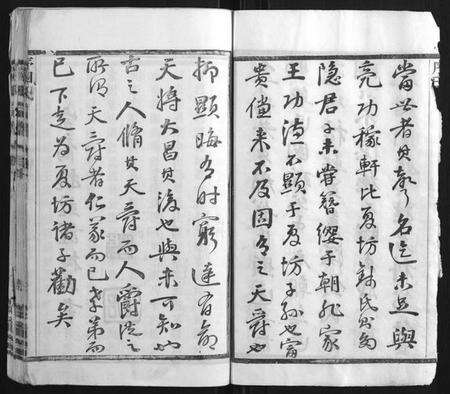 當世者其聲名遠未足與
亮功稼軒比夏坊錢氏多
隐君子未嘗簪纓于朝非家
王功德不顯于夏坊子孫也富
貴儻来不及固有之天爵也
抑顯晦有时窮達有命
天將大昌其後也與未可知也
古之人脩其天爵而人爵從之
所谓天爵者仁義而已孝弟而
已下走为夏坊诸子勸矣